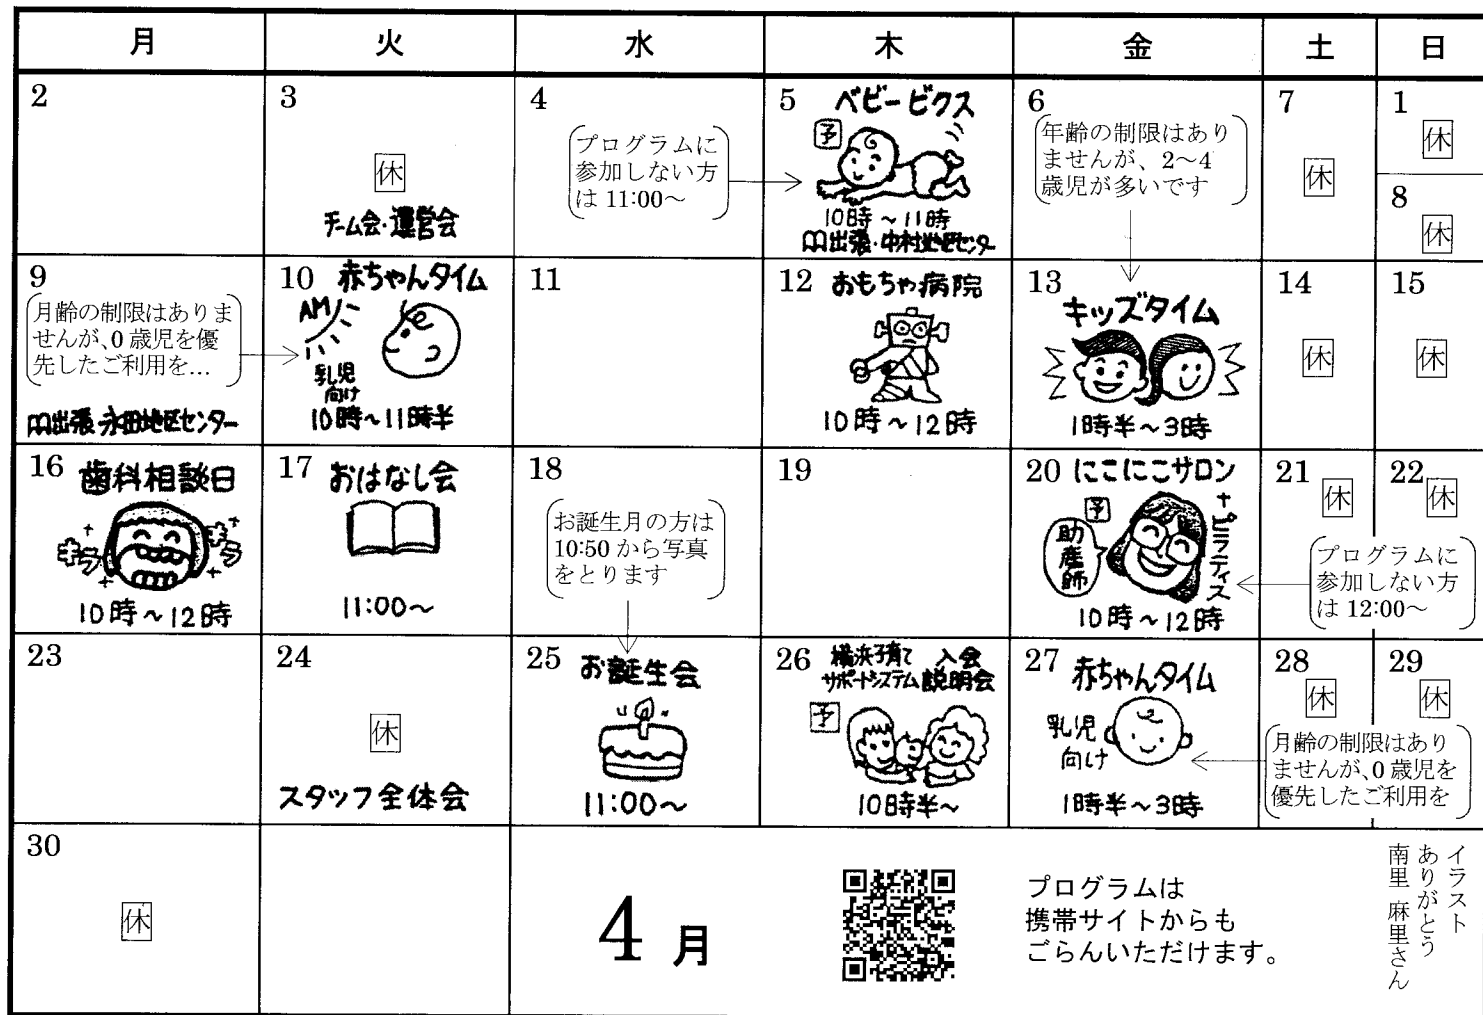 月 火 水 木 金 土 日
2
3
休
チーム会・運営会
4
プログラムに
参加しない方
は 11:00～
5 ベビービクス
予
10時～11時
出張・中村地区センター
6
年齢の制限はあり
ませんが、2～4
歳児が多いです
7
休
1
休
8
休
9
月齢の制限はありま
せんが、0 歳児を優
先したご利用を…
出張 永田地区センター
10 赤ちゃんタイム
AM
乳児
向け
10時～11時半
11
12 おもちゃ病院
10時～12時
13
キッズタイム
1時半～3時
14
休
15
休
16 歯科相談日
キラ
キラ
10時～12時
17 おはなし会
11:00～
18
お誕生月の方は
10:50 から写真
をとります
19
20 にこにこサロン
+ピラティス
予
助産師
10時～12時
21
休
22
休
プログラムに
参加しない方
は 12:00～
23
24
休
スタッフ全体会
25 お誕生会
11:00～
26 横浜子育て 入会
サポートシステム 説明会
予
10時半～
27 赤ちゃんタイム
乳児
向け
1時半～3時
28
休
29
休
月齢の制限はあり
ませんが、0 歳児を
優先したご利用を
30
休
4 月
プログラムは
携帯サイトからも
ごらんいただけます。
イラスト
ありがとう
南里 麻里さん